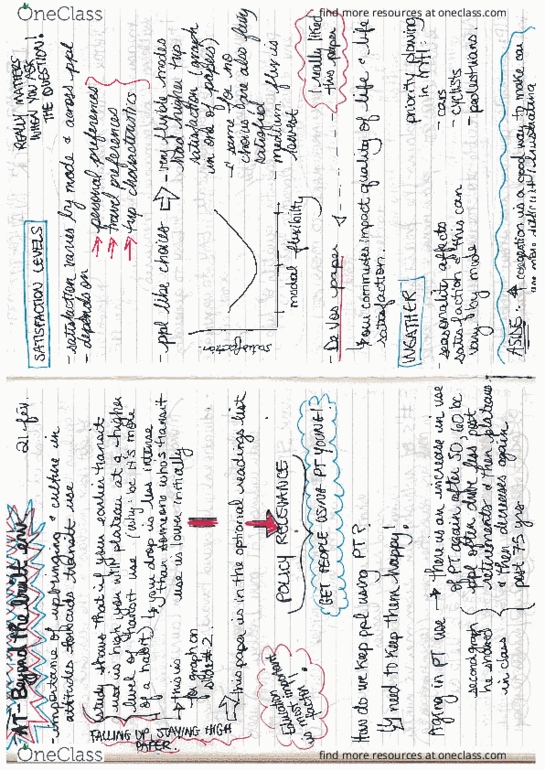 OneClass
find more resources at oneclass.com
AT-Beyond the built env
21 fév.
- importance of upbringing & culture in
attitudes towards transit use
study shows that if your earlier transit
use is high you will plateau at a higher
level of transit use (why: bc it's more
of a habit) ↳ your drop is less intense
than someone who's transit
use is lower initially
→ this is
the graph on
slide # 2.
FALLING UP, STAYING HIGH
PAPER.
⇒ this paper is in the optional readings list
POLICY RELEVANCE
GET PEOPLE USING PT YOUNG!
Education important
is most
factor.
How do we keep ppl using PT?
↳ need to keep them happy!
Aging in PT use → there is an increase in use
of PT again after 50, 60 bc
ppl often drive less post
retirement & then plateaus
& then decreases again
past 75 yrs.
second graph
he showed
in class
OneClass
find more resources at oneclass.com
OneClass
find more resources at oneclass.com
SATISFACTION LEVELS
REALLY MATTERS
WHEN YOU ASK
THE QUESTION!
- satisfaction varies by mode & across ppl
- depends on
⇒ personal preferences
⇒ travel preferences
⇒ trip characteristics
- ppl like choices ⇒ - very flexible modes
had higher trip
satisfaction (graph
in one of papers)
- same for no
choices (one also fairly
satisfied
- medium flex is
lowest
satisfaction
modal flexibility
- De Vos paper
I really liked
this paper
↳ your commutes impact quality of life & life
satisfaction.
WEATHER
- seasonality affects
satisfaction & this can
vary by mode
priority plowing
in MTL:
- cars
- cyclists
- pedestrians.
ASIDE: * congestion is a good way to make car
use more